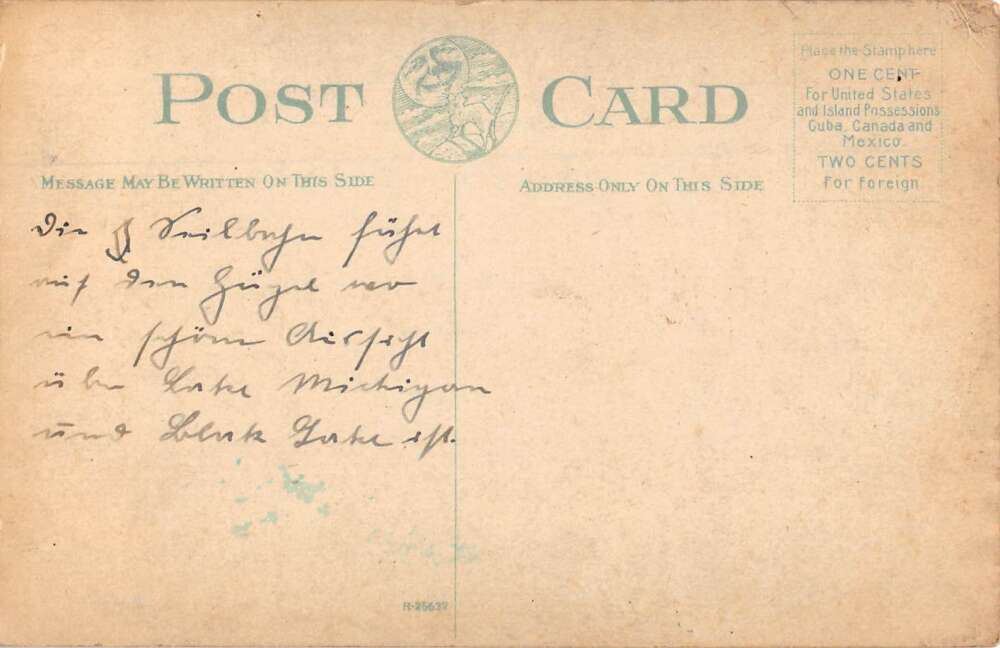 POST CARD
Place the Stamp here
ONE CENT
For United States
and Island Possessions
Cuba, Canada and
Mexico.
TWO CENTS
For Foreign
MESSAGE MAY BE WRITTEN ON THIS SIDE
ADDRESS ONLY ON THIS SIDE
Die Seilbahn führt
auf den Hügel wo
ein schöne Aussicht
über Lake Michigan
und Black Lake ist.
R-25637